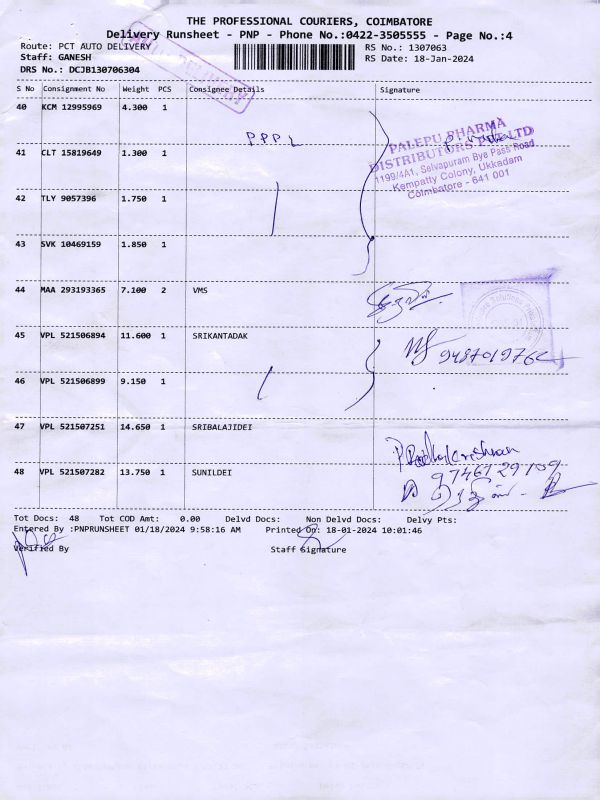 THE PROFESSIONAL COURIERS, COIMBATORE
Delivery Runsheet - PNP - Phone No.:0422-3505555 - Page No.:4
Route: PCT AUTO DELIVERY RS No.: 1307063
Staff: GANESH RS Date: 18-Jan-2024
DRS No.: DCJB130706304
S No Consignment No Weight PCS Consignee Details Signature
40 KCM 12995969 4.300 1
PPPL
PALEPU PHARMA
DISTRIBUTORS PVT LTD
1199/4A1, Selvapuram Bye Pass Road
Kempatty Colony, Ukkadam
Coimbatore - 641 001
41 CLT 15819649 1.300 1
42 TLY 9057396 1.750 1
43 SVK 10469159 1.850 1
44 MAA 293193365 7.100 2 VMS
45 VPL 521506894 11.600 1 SRIKANTADAK
9487019762
46 VPL 521506899 9.150 1
47 VPL 521507251 14.650 1 SRIBALAJIDEI
P Radhakrishnan
9746729109
48 VPL 521507282 13.750 1 SUNILDEI
Tot Docs: 48 Tot COD Amt: 0.00 Delvd Docs: Non Delvd Docs: Delvy Pts:
Entered By :PNPRUNSHEET 01/18/2024 9:58:16 AM Printed On: 18-01-2024 10:01:46
Verified By Staff Signature